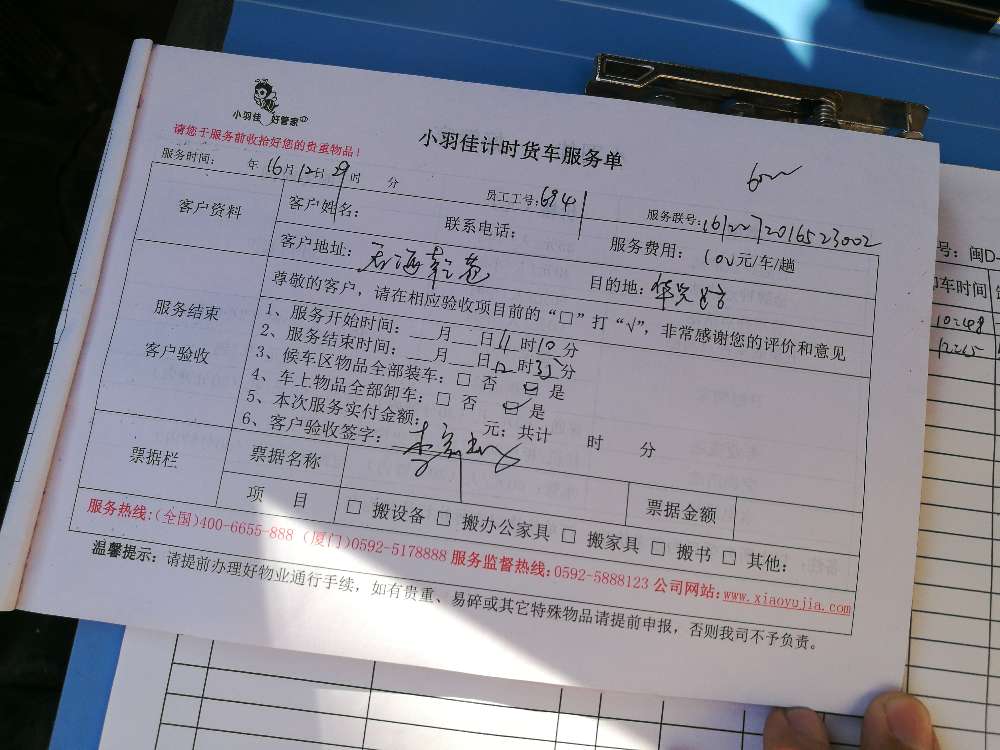 小羽佳 好管家
请您于服务前收拾好您的贵重物品！
小羽佳计时货车服务单
服务时间： 年16月12日29时 分
员工工号：6941
服务联号：1612272016523002
客户资料
客户姓名： 联系电话： 服务费用：100元/车/趟
客户地址： 目的地：
服务结束
客户验收
尊敬的客户，请在相应验收项目前的“□”打“√”，非常感谢您的评价和意见
1、服务开始时间：___月___日11时10分
2、服务结束时间：___月___日12时35分
3、候车区物品全部装车：□ 否 ☑ 是
4、车上物品全部卸车：□ 否 ☑ 是
5、本次服务实付金额： 元；共计 时 分
6、客户验收签字：
票据栏
票据名称 票据金额
项 目 □ 搬设备 □ 搬办公家具 □ 搬家具 □ 搬书 □ 其他：
服务热线：(全国)400-6655-888 (厦门)0592-5178888 服务监督热线：0592-5888123 公司网站：www.xiaoyujia.com
温馨提示：请提前办理好物业通行手续，如有贵重、易碎或其它特殊物品请提前申报，否则我司不予负责。
号：闽D-
卸车时间
10:48
12:15